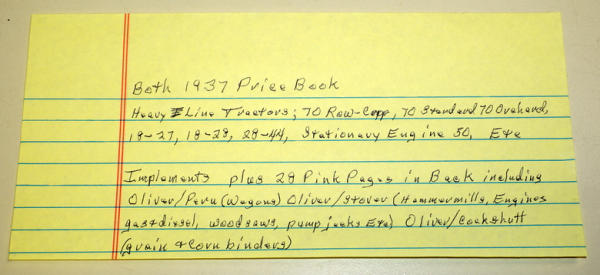 Both 1937 Price Book
Heavy Line Tractors; 70 Row-Crop, 70 Standard 70 Orchard,
18-27, 18-28, 28-44, Stationary Engine 50, Etc
Implements plus 28 Pink Pages in Back including
Oliver/Peru (Wagons) Oliver/Stover (Hammermills, Engines
gas & diesel, wood saws, pump jacks Etc) Oliver/Cockshutt
(grain & Corn binders)